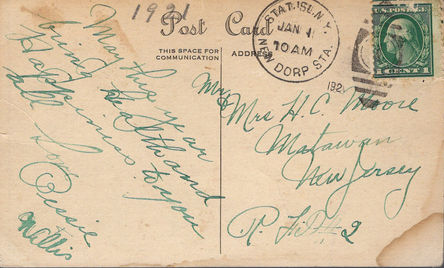 1921
Post Card
THIS SPACE FOR
COMMUNICATION
ADDRESS
NEW DORP STA. STAT. ISL. N.Y.
JAN 1
10 AM
192
U.S. POSTAGE
1 CENT 1
May this year
bring Health and
Happiness to you
all Love
Bessie
Willis
Mrs H. C. Moore
Matawan
New Jersey
R. F. D. #2